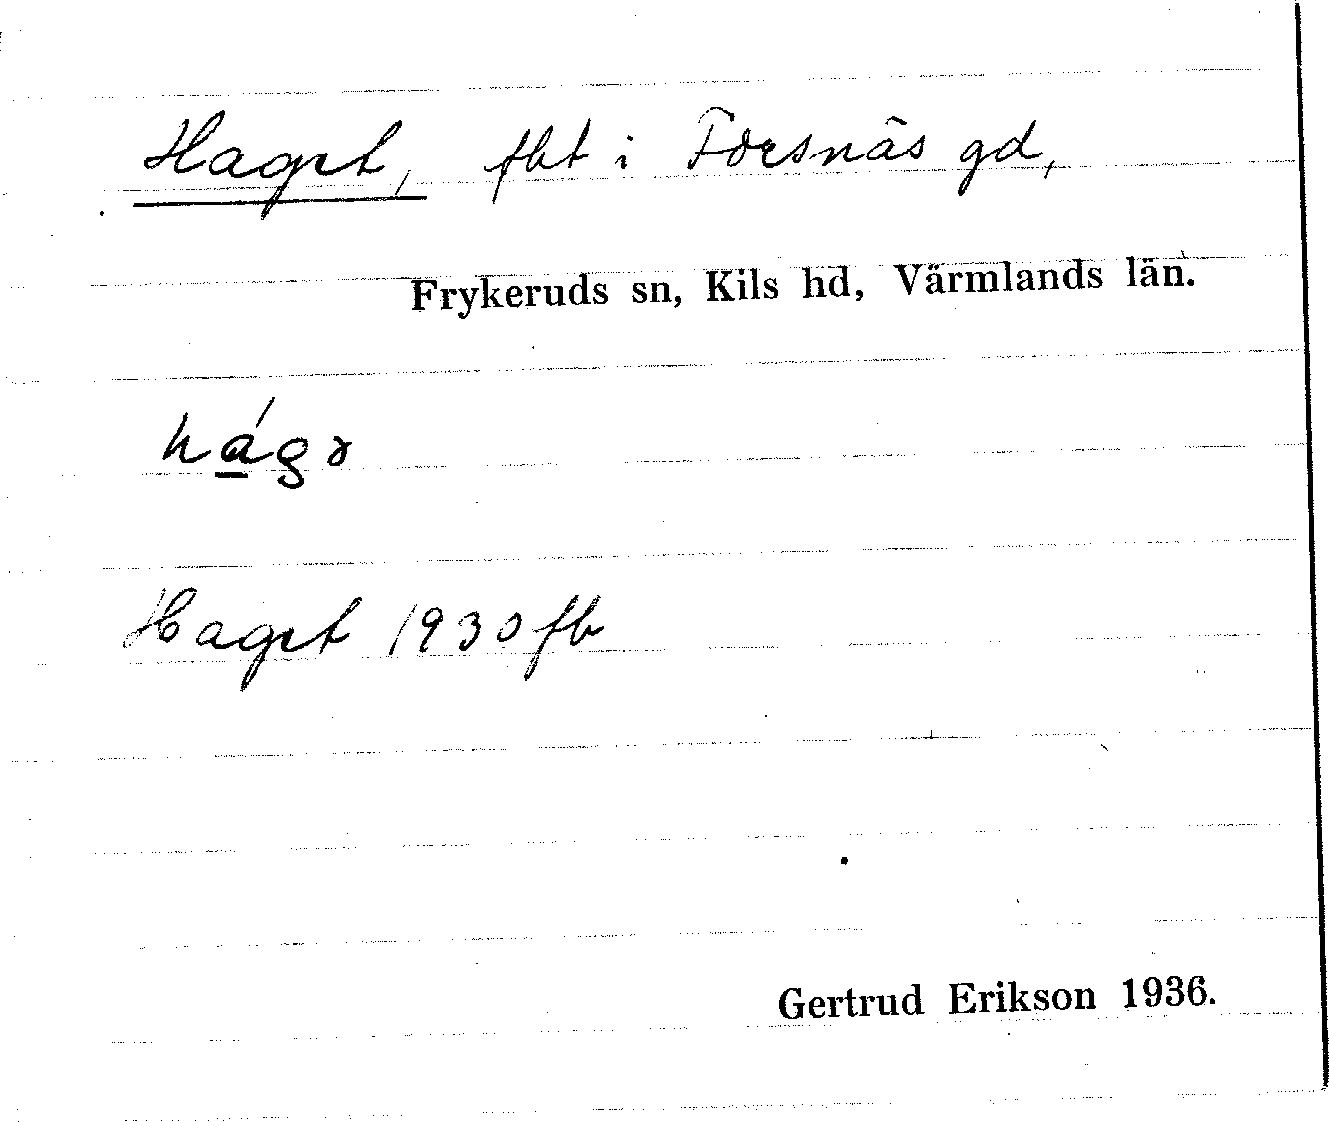 Haget, fbt i Forsnäs gd,
Frykeruds sn, Kils hd, Värmlands län.
hág
Haget 1930 fb
Gertrud Erikson 1936.